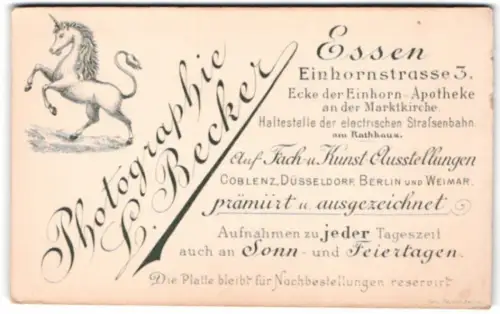 Photographie
L. Becker
Essen
Einhornstrasse 3.
Ecke der Einhorn-Apotheke
an der Marktkirche.
Haltestelle der electrischen Strafsenbahn
am Rathhaus.
Auf Fach- u. Kunst-Ausstellungen
COBLENZ, DÜSSELDORF, BERLIN UND WEIMAR.
prämiirt u. ausgezeichnet
Aufnahmen zu jeder Tageszeit
auch an Sonn- und Feiertagen.
Die Platte bleibt für Nachbestellungen reservirt